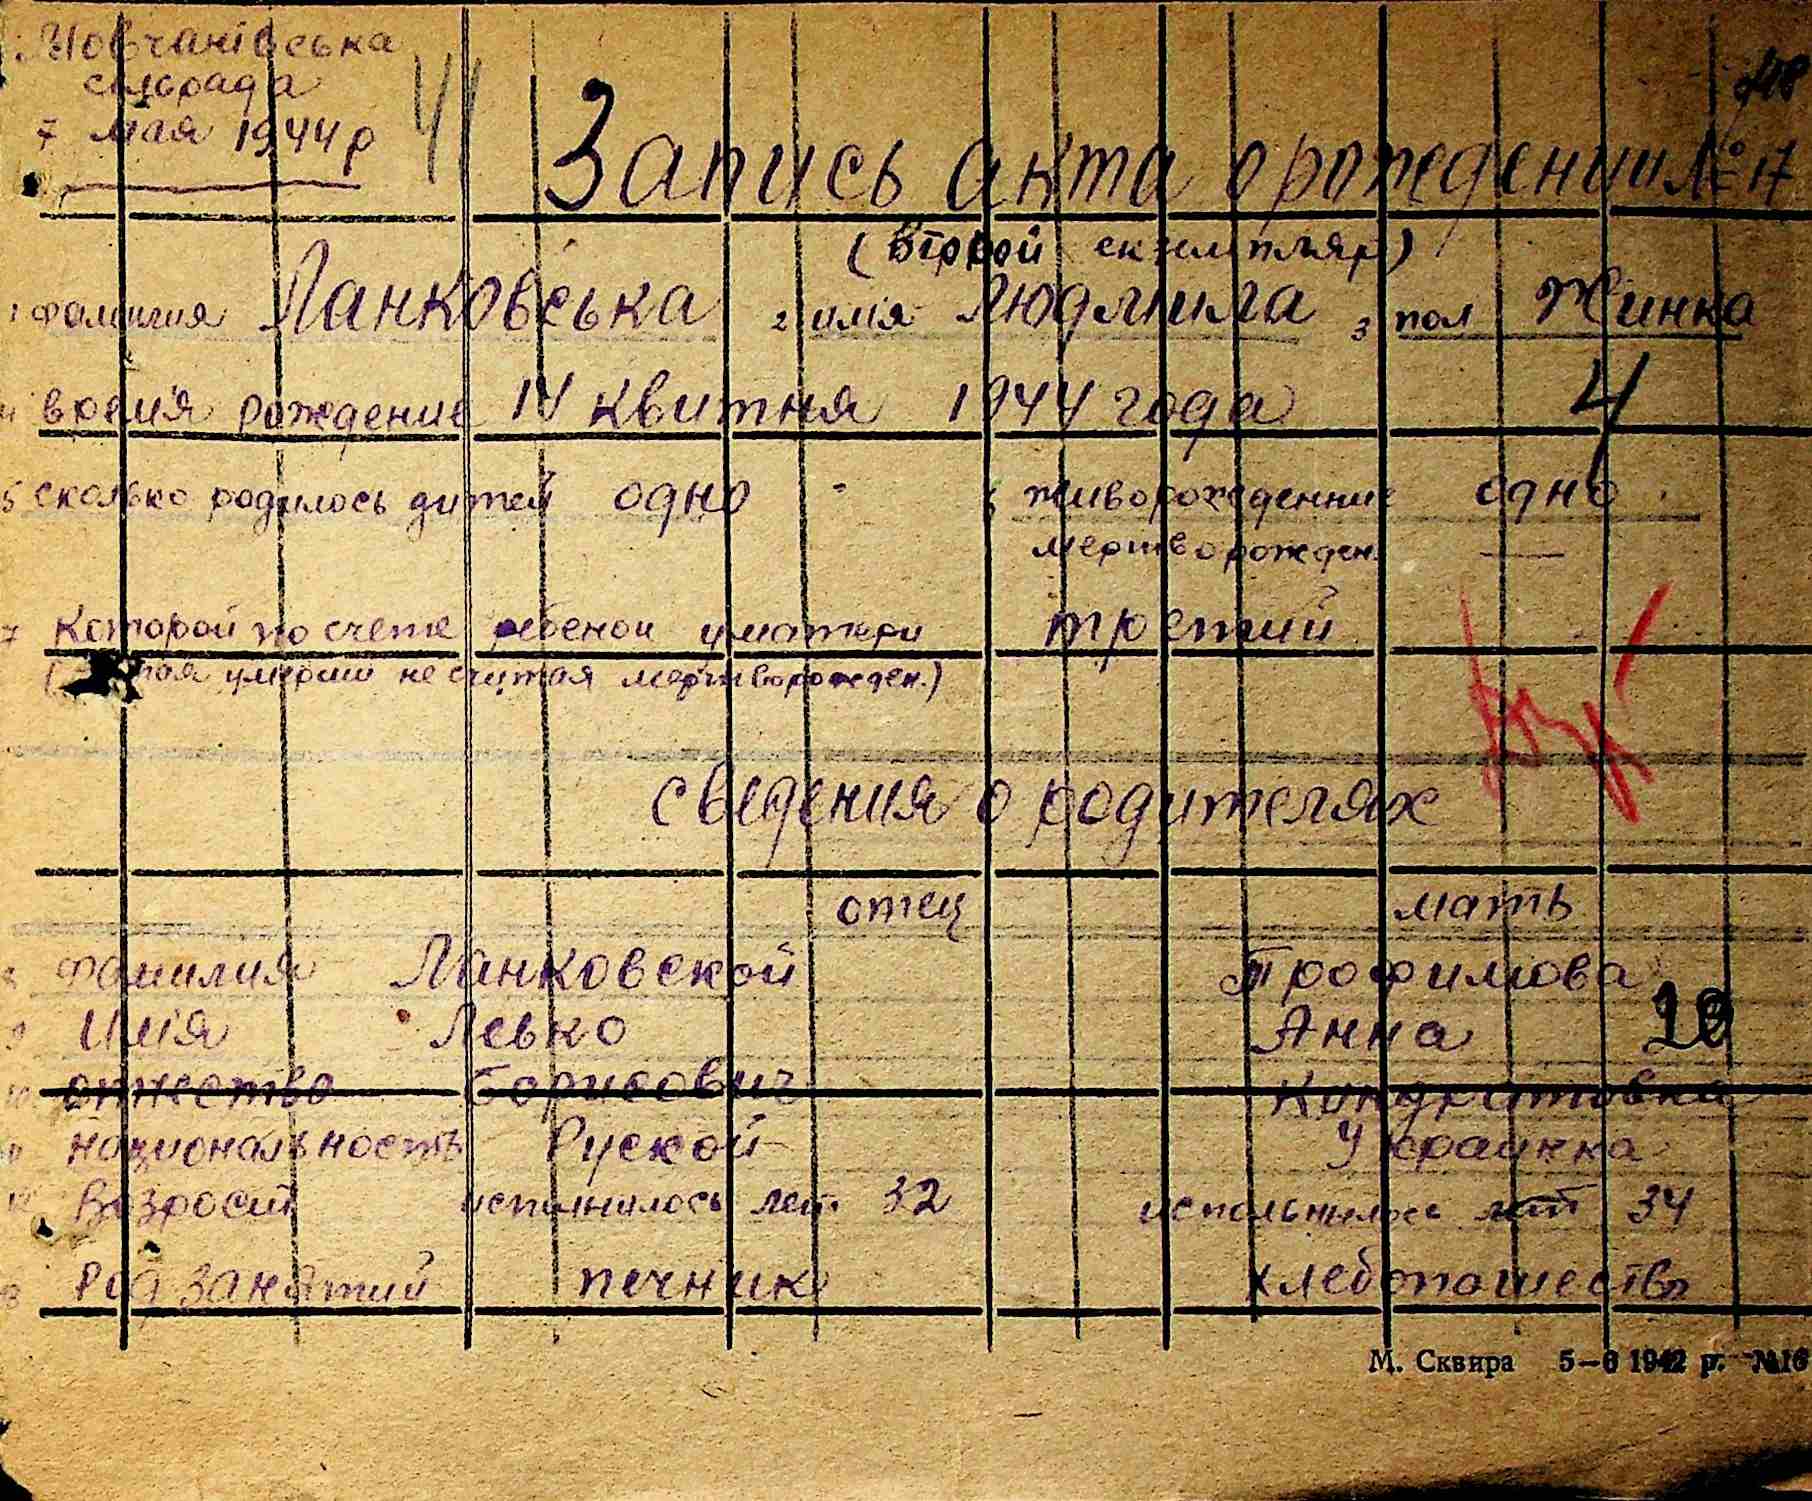 Мовчанівська
сільрада
7 мая 1944 р
41
Запись акта о рождении № 17
(Второй екземпляр)
1 фамилия Ланковська 2 имія Людмила 3 пол Жинка
4 времія рождение 14 квитня 1944 года 4
5 сколько родилось дитей одно 6 живорожденние одно
мертворожден. —
7 Которой по счете ребенок у матери третий
умерших не считая мертворожден.)
сведения о родителях
отец мать
8 фамилия Ланковской Трофимова
9 Имія Левко Анна 20
10 отчество Борисович Кондратовна
11 национальность Руской Украинка
12 Возрост исполнилось лет 32 испольнилось лет 34
13 Род занятий печник хлебопашество
М. Сквира 5—6 1942 р. №16